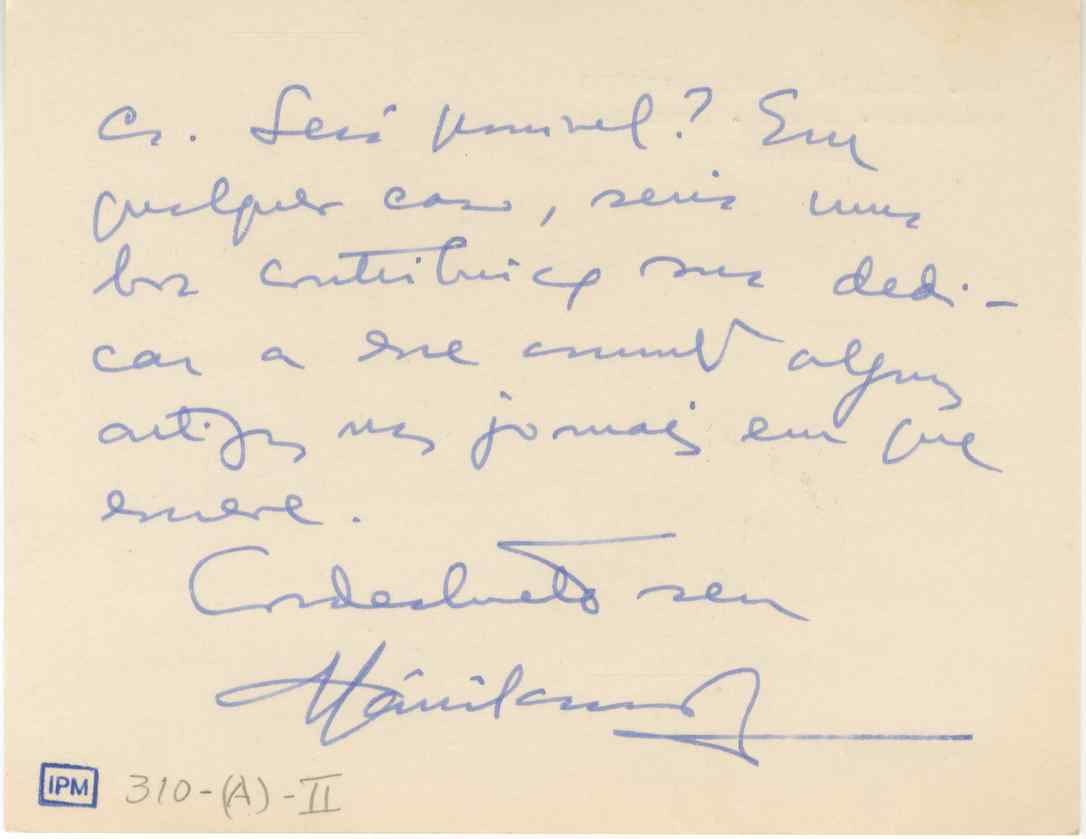 ca. Será possivel? Em
qualquer caso, seria uma
boa contribuição sua dedi-
car a esse assunto alguns
artigos nos jornais em que
escreve.
Cordealmente seu
IPM 310-(A)-II